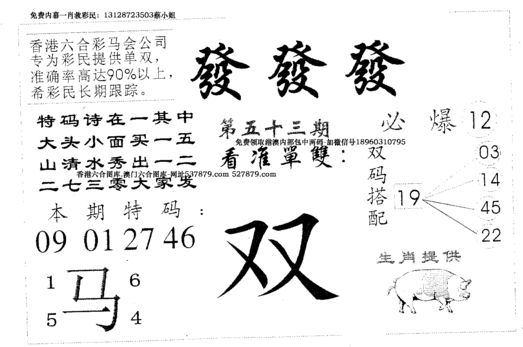 免费内幕一肖救彩民：13128723503蔡小姐
香港六合彩马会公司
专为彩民提供单双，
准确率高达90%以上，
希彩民长期跟踪。
發 發 發
特码诗在一其中
大头小面买一五
山清水秀出一二
二七三零大家发
第五十三期
免费领取港澳内部包中两码-加微信号18960310795
看准單雙：
香港六合图库-澳门六合图库-网址537879.com 527879.com
必 爆 12
双码搭配
19
03
14
45
22
本期特码：
09 01 27 46
1 6
马
5 4
双
生肖提供